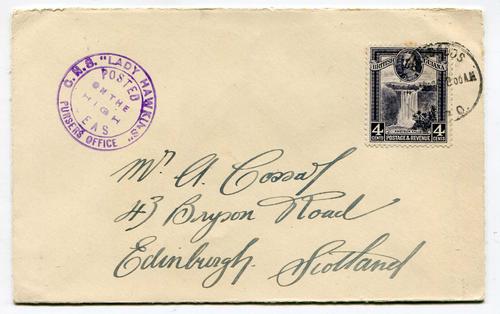 C.N.S. "LADY HAWKINS"
POSTED
ON THE
HIGH
SEAS
PURSERS OFFICE
BRITISH GUIANA
4 CENTS
POSTAGE & REVENUE
4 CENTS
Mr A. Cossar
43 Bryson Road
Edinburgh. Scotland